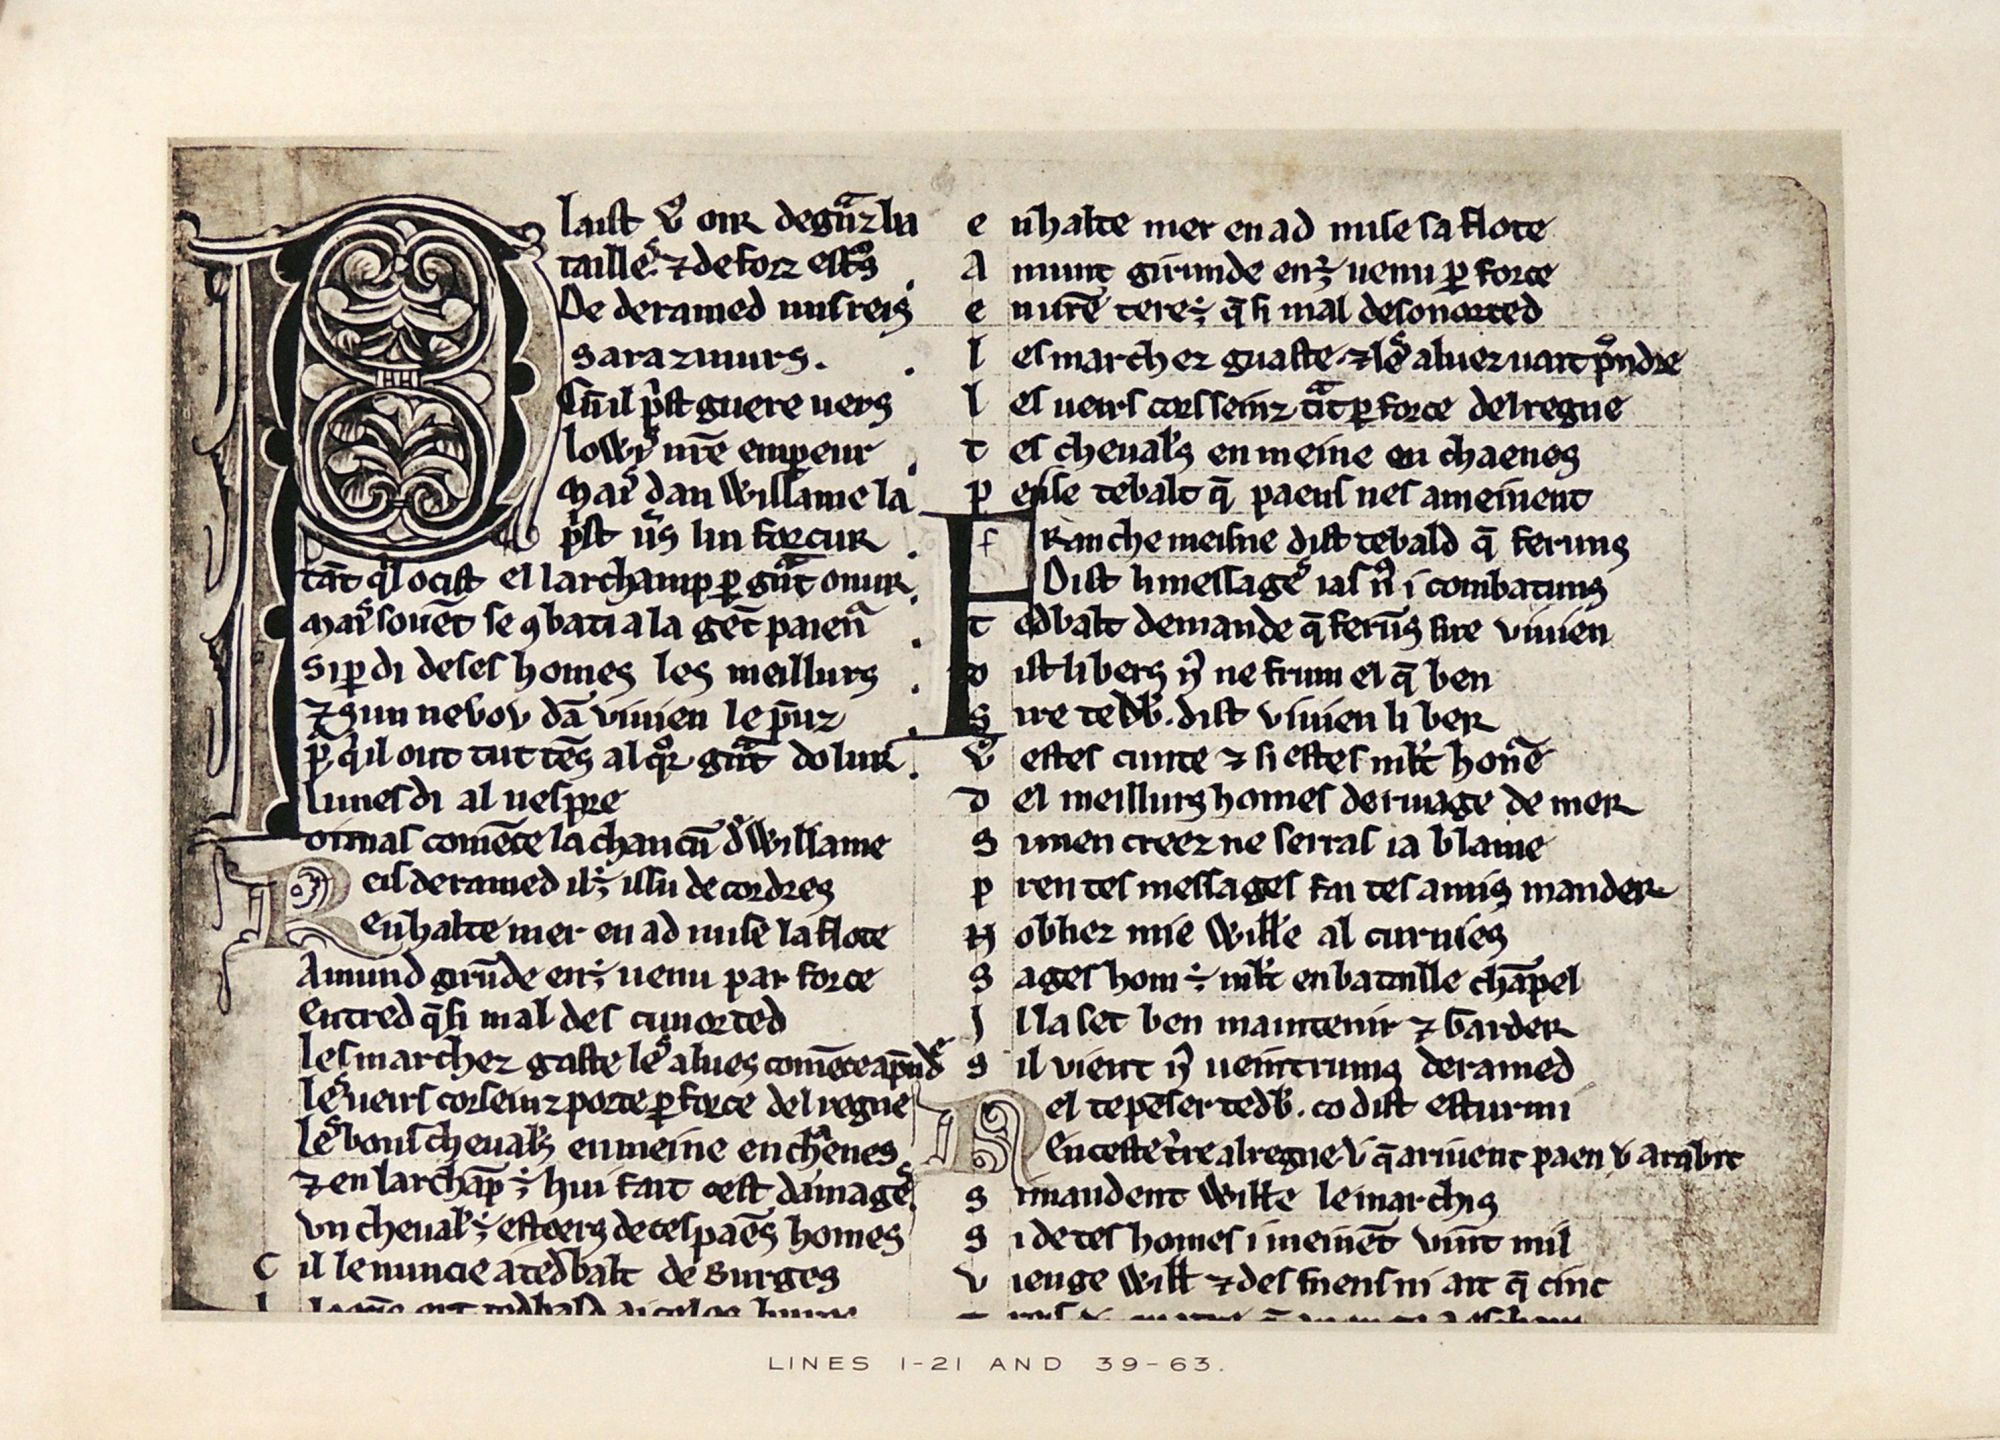 Plaist vꝰ oir de gͣnz ba
tailleˢ ⁊ de forz estͫs
De deramed uns reis
sarazinurs.
Cū il pͥst guere vers
lowyˢ nr̄e emꝑeur
Maiˢ dan Willame la
pͥst uͥs lui forcur
tāt qͥl ocist el larchamp ꝑ gͣnt onur
maiˢ souēt se ꝯbati a la gēt paienͣ
si ꝑdi de ses homes les meillurs
⁊ sun nevov dā vivien le p̄uz
ꝑ qͥ il out tut tēs al qͦr gͣnt dolur
lunesdi al vespre
oimas comēce la chancū dˀ Willame
Reis deramed il ÷ issu de cordres
en halte mer en ad mise la flote
Amund girūde en ÷ uenu par force
entred q̄ si mal descunorted
les marchez gaste leˢ alues comēce a p̄ndͤ
leˢ veirs corseinz porte ꝑ force del regne
leˢ bons chevalˢ en meine en chͣenes
⁊ en larchāp ÷ hui fait cest damageˢ
vn chevalˢ ÷ estoers de cels paēs homes
Cil le nuncie a tedbalt de Burges
en halte mer en ad mise sa flote
Amunt girunde en ÷ uenu ꝑ force
en nr̄e tere ÷ q̄ si mal desonorted
les marchez guaste ⁊ leˢ aluez uait pͦndre
les veirs cors seinz tͣit ꝑ force del regne
tes chevalˢ en meine en chaenes
pense tebalt q̄ paens nes ameinent
F Ranche meisne dist tebald q̄ feruns
Dist li messageˢ ia lˢ nͦ i combatuns
tedbalt demande q̄ ferūs sire vivien
dist li bers nͦ ne frum el q̄ ben
Sire tedb̄. dist vivien li ber
Vͦ estes cunte ⁊ si estes mlt̄ honͤ
del meillurs homes de rivage de mer
Si men creez ne serras ia blame
pren tes messages fai tes amis mander
N obliez mie Will̄e al curnies
Sages hom ÷ mlt̄ en bataille chāpel
Il la set ben maintenir ⁊ Garder
S il vient nͦ ueintrums deramed
Nel te pēser tedb̄. co dist esturmi
En ceste tͥre al regne v q̄ arivent paen v arabit
Si mandent Will̄e le marchis
Si de tes homes i meinēt vint mil
Vienge Will̄ ⁊ des suens ni ait q̄ cinc
LINES 1-21 AND 39-63.